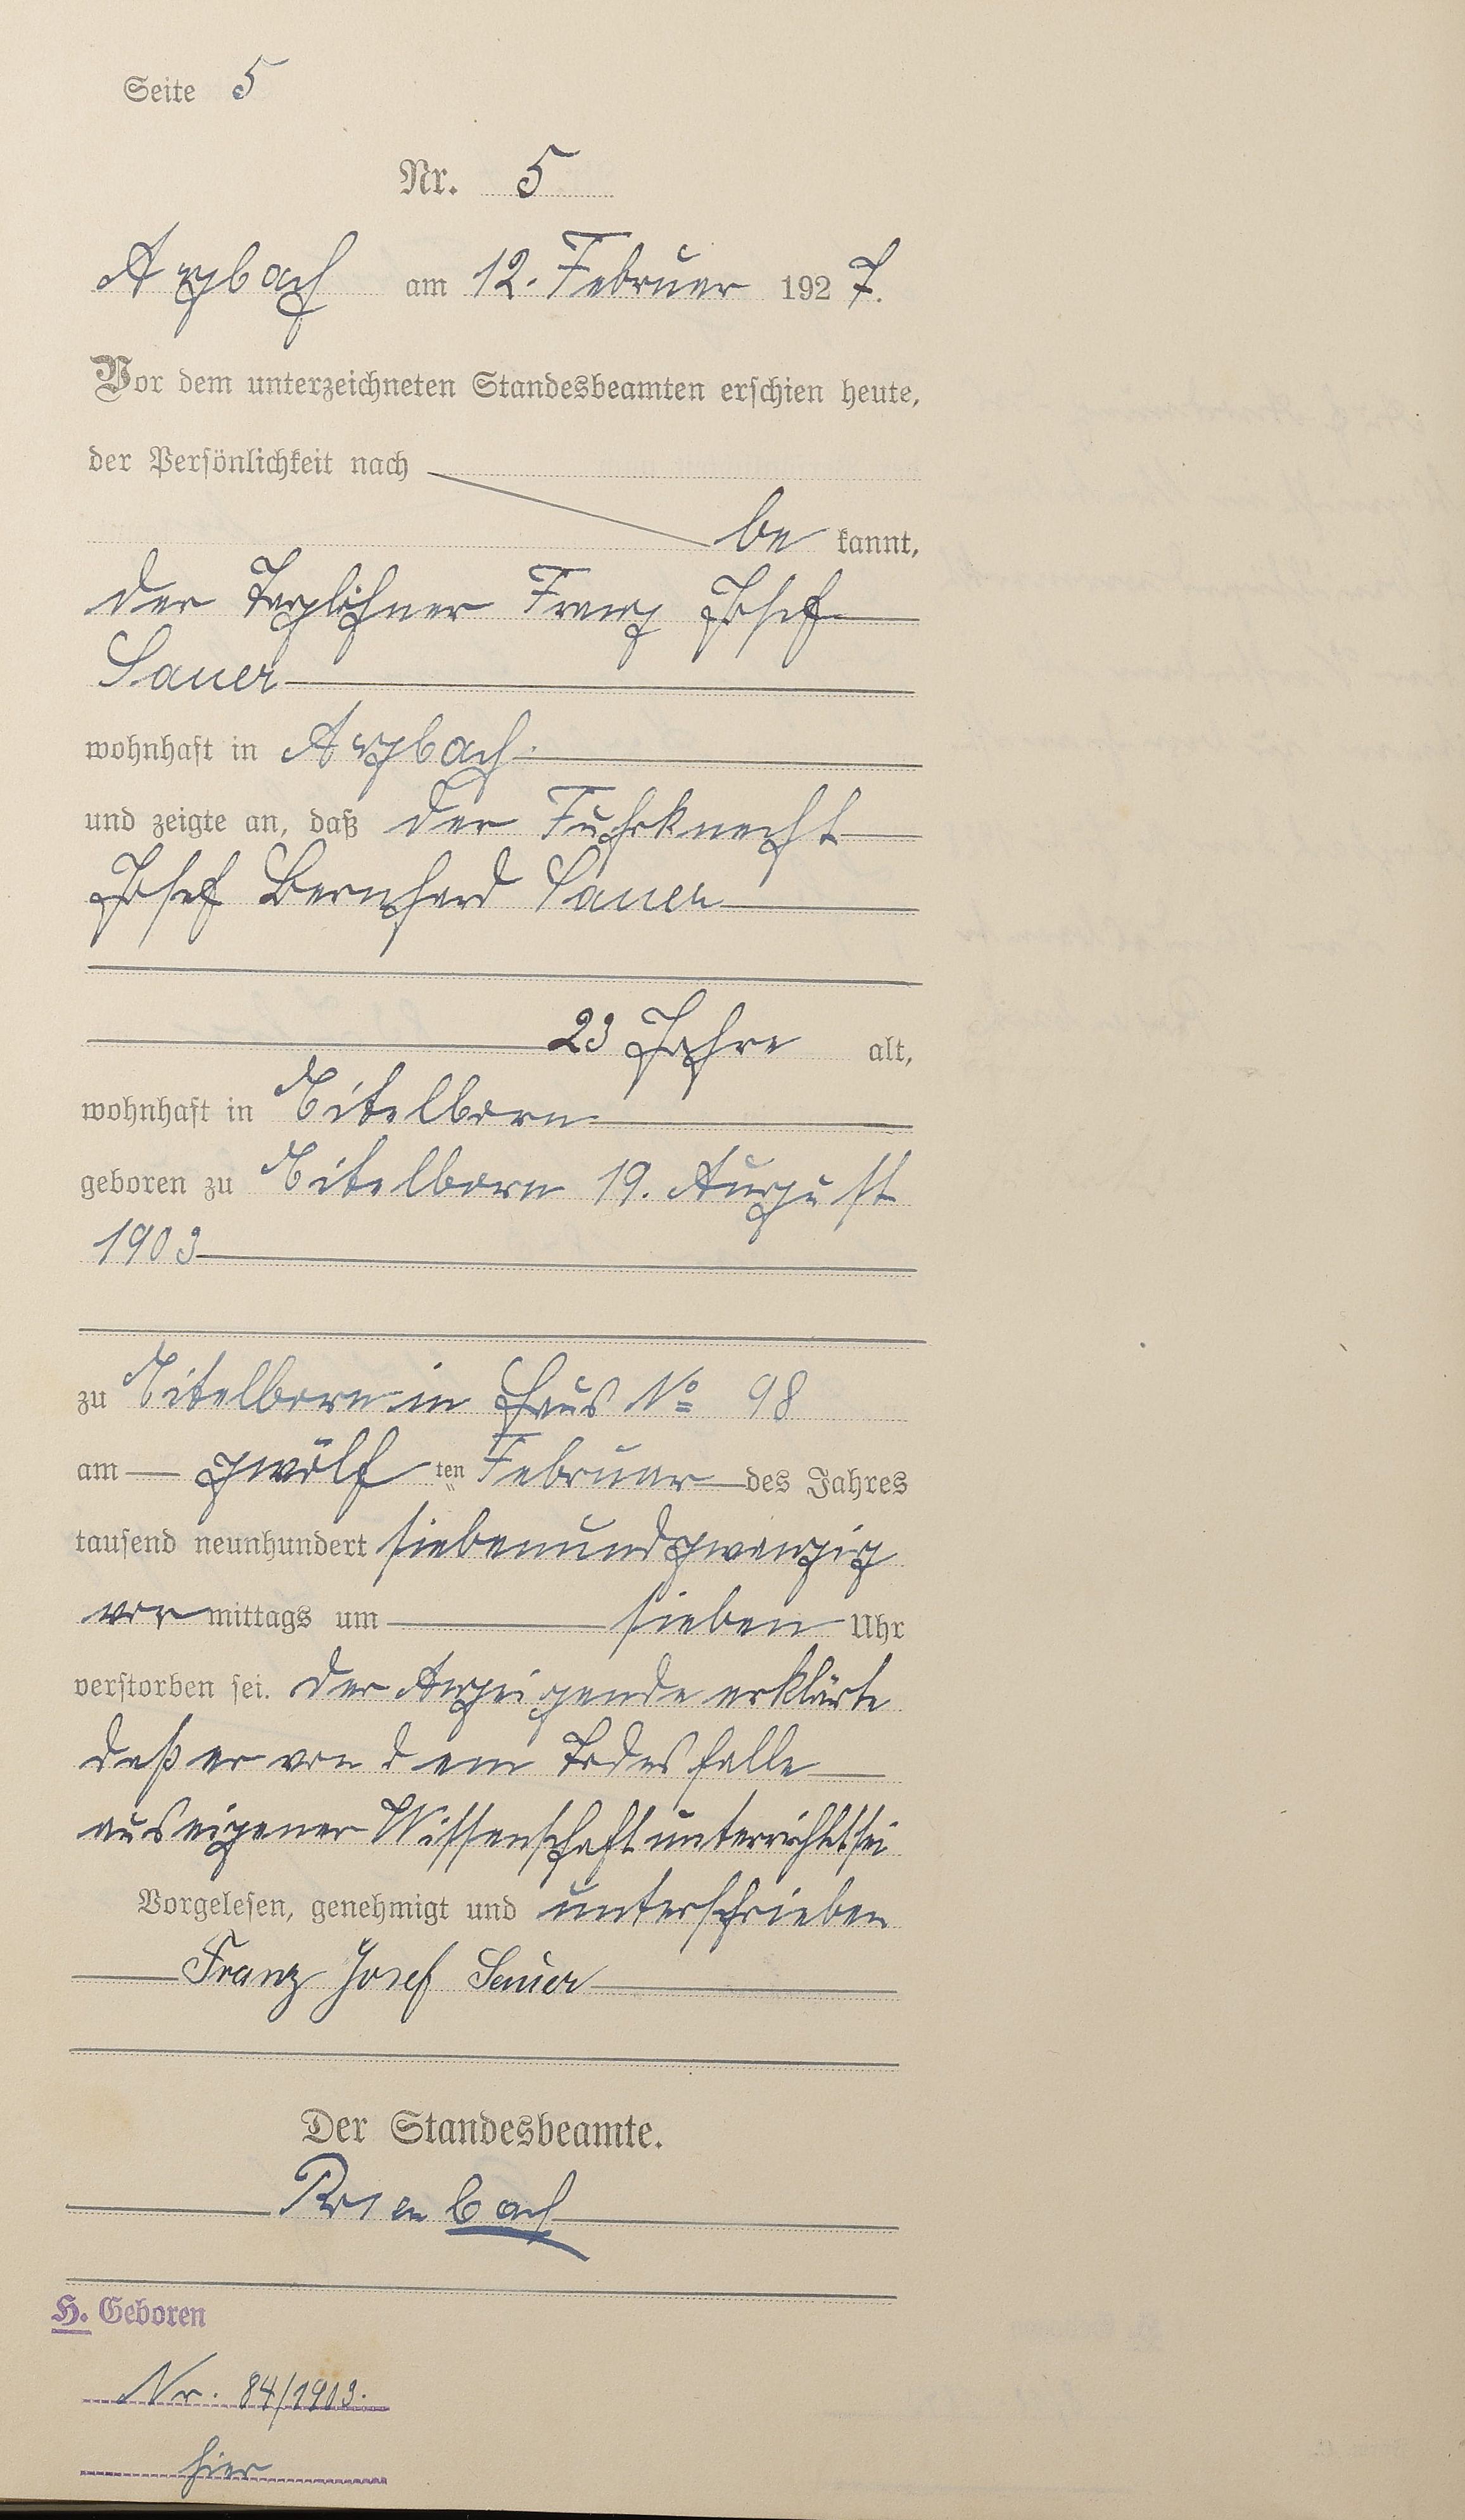 Seite 5
Nr. 5
Arzbach am 12. Februar 1927.
Vor dem unterzeichneten Standesbeamten erschien heute,
der Persönlichkeit nach
be kannt,
der Taglöhner Franz Josef
Sauer
wohnhaft in Arzbach.
und zeigte an, daß der Fuhrknecht
Josef Bernhard Sauer
23 Jahre alt,
wohnhaft in Eitelborn
geboren zu Eitelborn 19. August
1903
zu Eitelborn in Haus No 98
am zwölf ten Februar des Jahres
tausend neunhundert siebenundzwanzig
vor mittags um sieben Uhr
verstorben sei. Der Anzeigende erklärte
daß er von dem Todesfalle
aus eigener Wissenschaft unterrichtet sei
Vorgelesen, genehmigt und unterschrieben
Franz Josef Sauer
Der Standesbeamte.
Rosenbach
H. Geboren
Nr. 84/1903.
hier